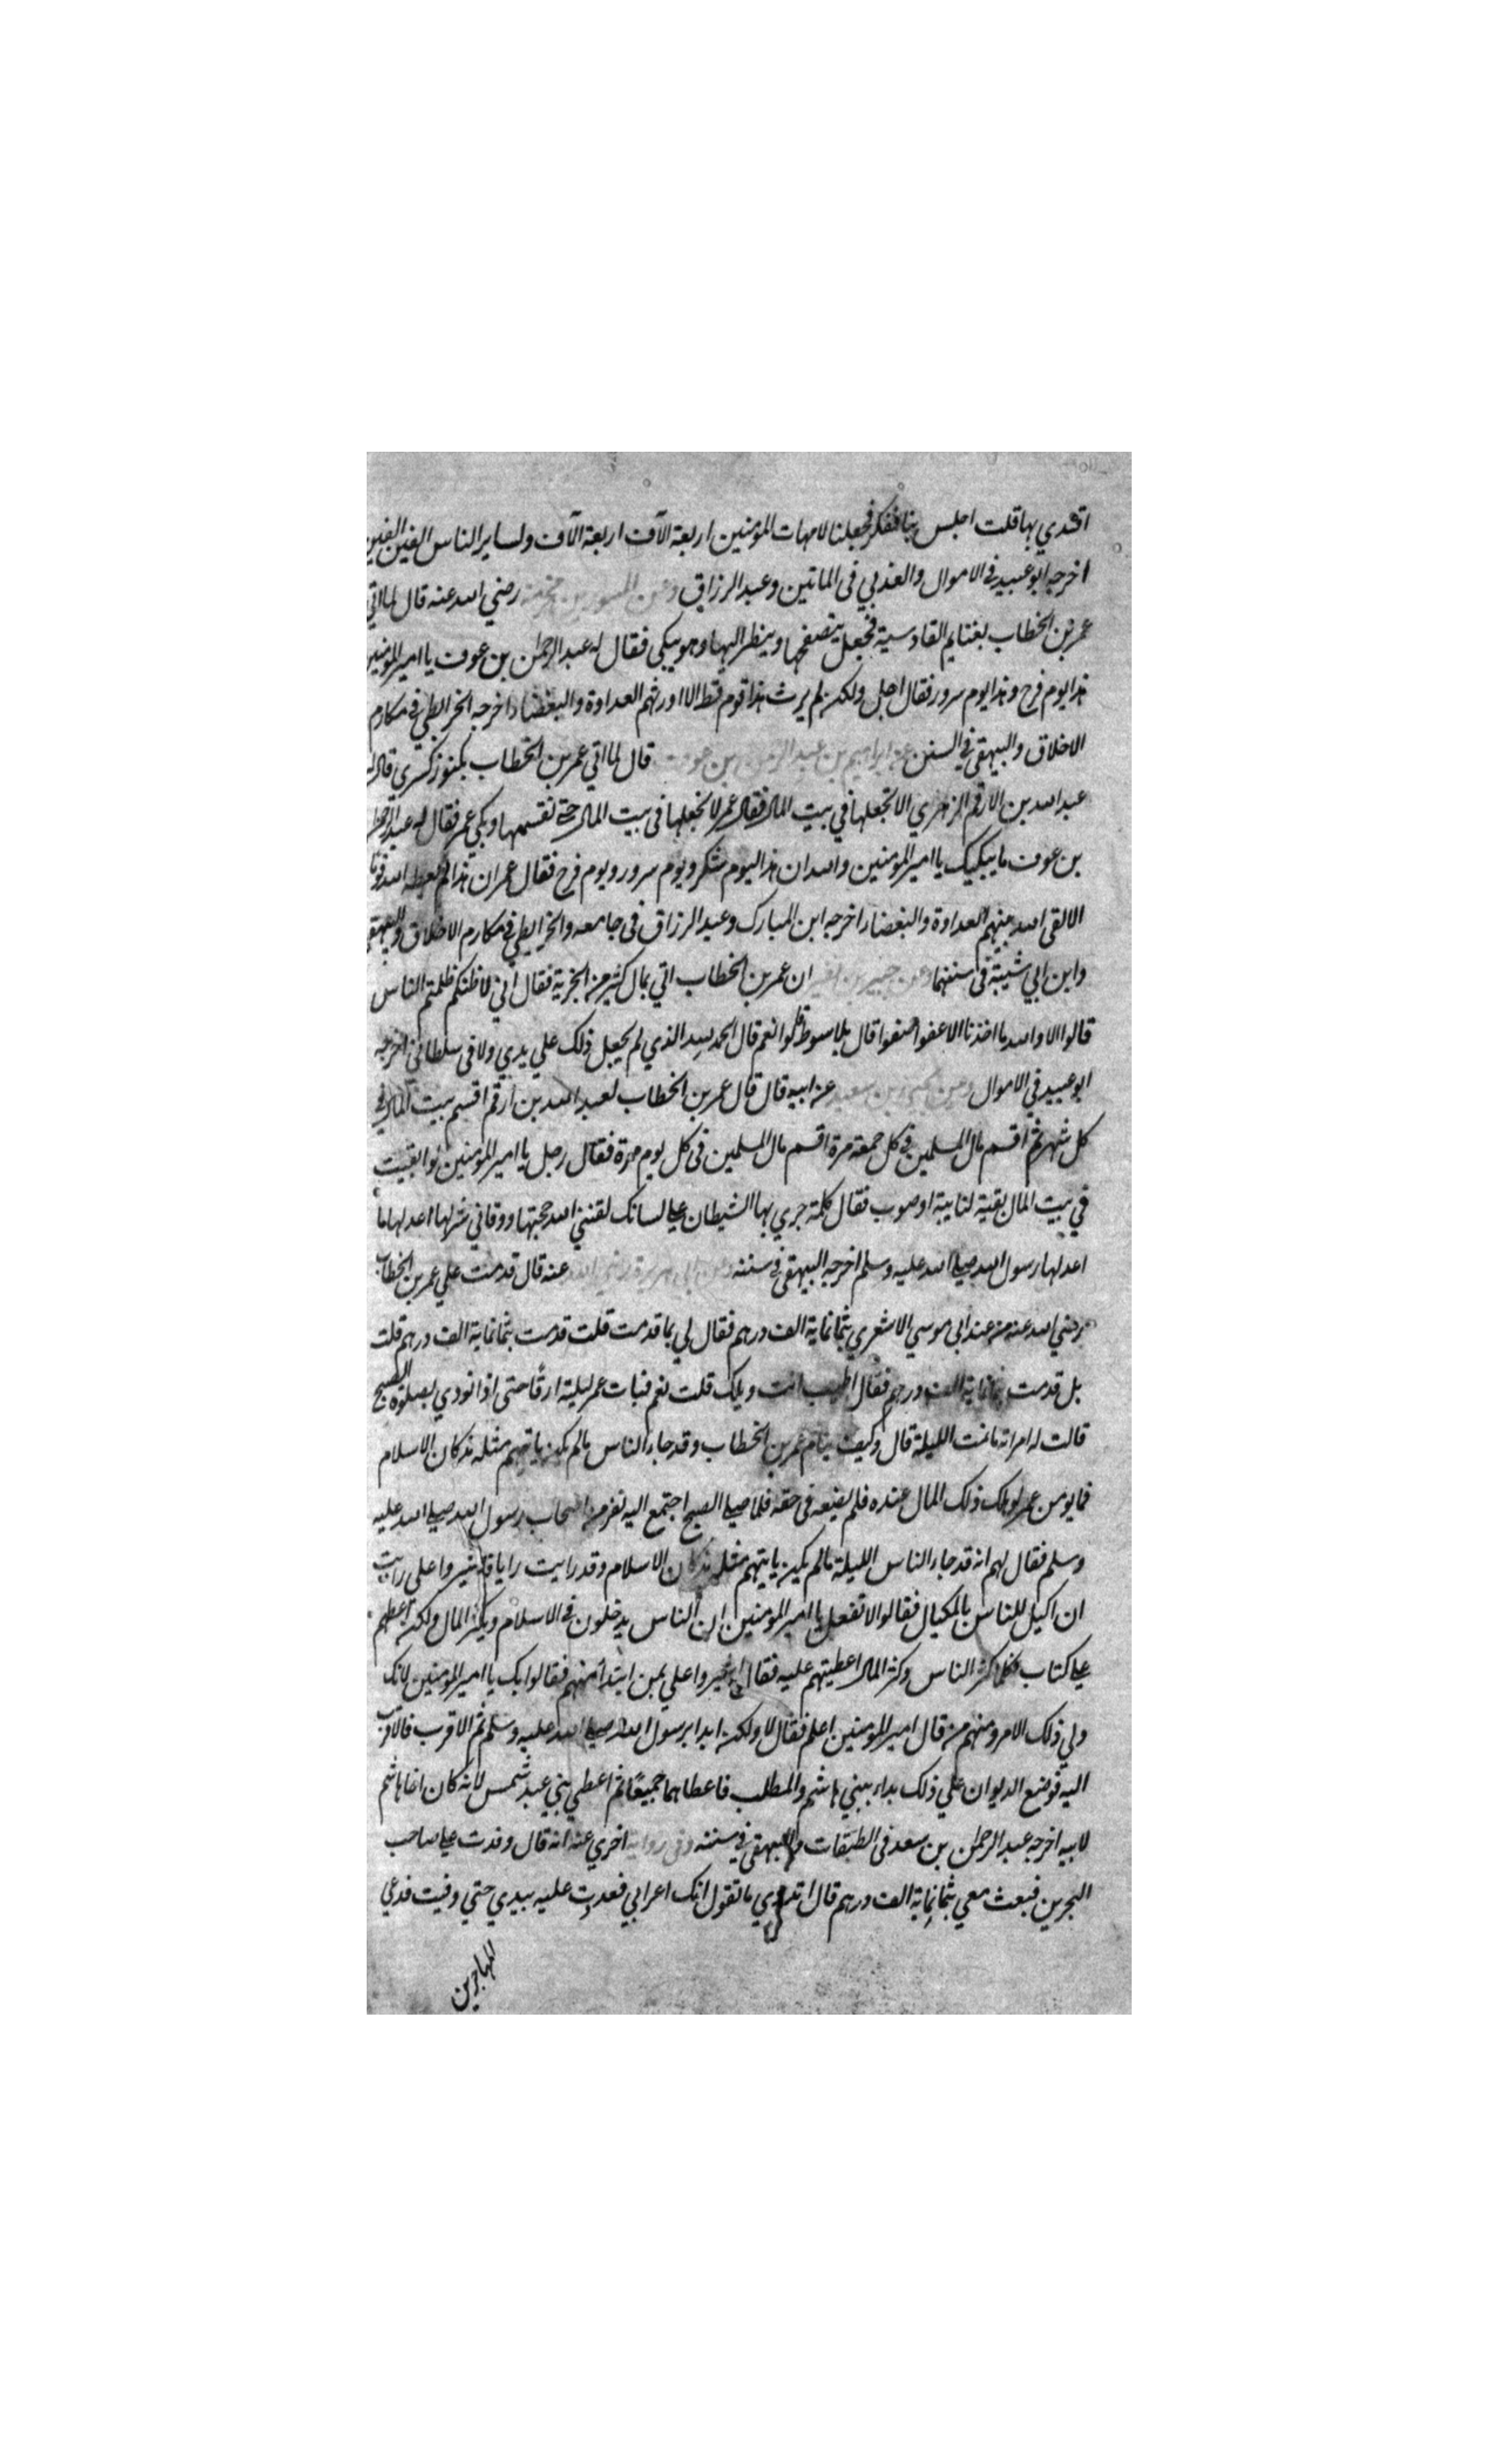 اقتدي بها قلت اجلس بنا نفكر فجعلنا لامهات المؤمنين اربعة الآف اربعة الآف ولساير الناس الفين الفين
اخرجه ابو عبيد في الاموال والعدني في المأتين وعبد الرزاق وعن المسور بن مخرمة رضي الله عنه قال لما اتي
عمر بن الخطاب بغنايم القادسية فجعل يتصفحها وينظر اليها وهو يبكي فقال له عبد الرحمن بن عوف يا امير المؤمنين
هذا يوم فرح وهذا يوم سرور فقال اجل ولكن لم يرث هذا قوم قط الا اورثهم العداوة والبغضاء اخرجه الخرايطي في مكارم
الاخلاق والبيهقي في السنن عن ابراهيم بن عبد الرحمن بن عوف قال لما اتي عمر بن الخطاب بكنوز كسرى قال له
عبد الله بن الارقم الزهري الا تجعلها في بيت المال فقال عمر لا نجعلها في بيت المال حتى نقسمها وبكي عمر فقال له عبد الرحمن
بن عوف ما يبكيك يا امير المؤمنين والله ان هذا ليوم شكر ويوم سرور ويوم فرح فقال عمر ان هذا لم يعطه الله قوما
الا القى الله بينهم العداوة والبغضاء اخرجه ابن المبارك وعبد الرزاق في جامعه والخرايطي في مكارم الاخلاق والبيهقي
وابن ابي شيبة في سننهما وعن جبير بن نفير ان عمر بن الخطاب اتي بمال كثير من الجزية فقال اني لاظنكم ظلمتم الناس
قالوا لا والله ما اخذنا الا عفوا صفوا قال بلا سوط قالوا نعم قال الحمد لله الذي لم يجعل ذلك علي يدي ولا في سلطاني اخرجه
ابو عبيد في الاموال وعن يحيى بن سعيد عن ابيه قال قال عمر بن الخطاب لعبد الله بن ارقم اقسم بيت المال في
كل شهر ثم اقسم مال المسلمين في كل جمعة مرة اقسم مال المسلمين في كل يوم مرة فقال رجل يا امير المؤمنين لو ابقيت
في بيت المال بقية لنايبة او صوب فقال كلمة جري بها الشيطان علي لسانك لقنني الله حجتها ووقاني شرها اعد لها ما
اعد لها رسول الله صلى الله عليه وسلم اخرجه البيهقي في سننه وعن ابي هريرة رضي الله عنه قال قدمت علي عمر بن الخطاب
رضي الله عنه من عند ابي موسي الاشعري بثمانماية الف درهم فقال لي بما قدمت قلت قدمت بثمانماية الف درهم قلت
بل قدمت بثمانماية الف درهم فقال اطيب انت ويلك قلت نعم فبات عمر ليلته ارقًا حتى اذا نودي بصلوة الصبح
قالت له امراته ما نمت الليلة قال وكيف ينام عمر بن الخطاب وقد جاء الناس ما لم يكن ياتيهم مثله مذ كان الاسلام
فما يومن عمر لو هلك وذلك المال عنده فلم يضعه في حقه فلما صلى الصبح اجتمع اليه نفر من اصحاب رسول الله صلى الله عليه
وسلم فقال لهم انه قد جاء الناس الليلة ما لم يكن ياتيهم مثله مذ كان الاسلام وقد رايت رايا فاشيروا علي رايت
ان اكيل للناس بالمكيال فقالوا لا تفعل يا امير المؤمنين ان الناس يدخلون في الاسلام ويكثر المال ولكن اعطهم
علي كتاب فكلما كثر الناس وكثر المال اعطيتهم عليه فقال اشيروا علي بمن ابتدأ منهم فقالوا بك يا امير المؤمنين لانك
ولي ذلك الامر ومنهم من قال امير المؤمنين اعلم فقال لا ولكن ابدا برسول الله صلى الله عليه وسلم ثم الاقرب فالاقرب
اليه فوضع الديوان علي ذلك بداء ببني هاشم والمطلب فاعطاهما جميعًا ثم اعطي بني عبد شمس لانه كان اخا هاشم
لابيه اخرجه عبد الرحمن بن سعد في الطبقات والبيهقي في سننه وفي رواية اخري عنه انه قال وفدت علي صاحب
البحرين فبعث معي بثمانماية الف درهم قال اتدري ما تقول انك اعرابي فعددت عليه بيدي حتي وفيت فدعي
المهاجرين